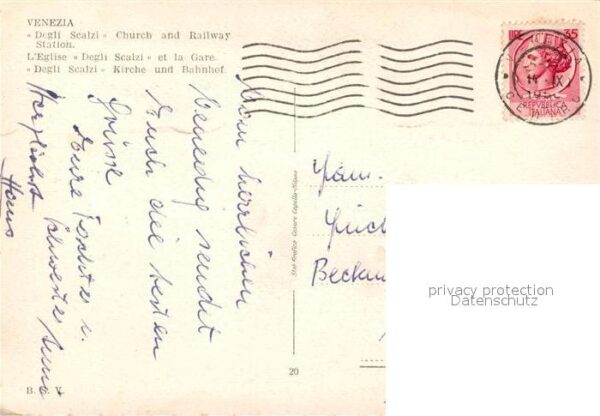 VENEZIA
« Degli Scalzi » Church and Railway
Station.
L'Eglise « Degli Scalzi » et la Gare.
« Degli Scalzi » Kirche und Bahnhof.
Vom herrlichen
Venedig sendet
Euch die besten
Grüsse
Eure Tochter u.
Schwester
Herzlichst
Hans
B. C. V.
20
LIRE 35
REPVBBLICA
ITALIANA
VENEZIA
privacy protection
Datenschutz